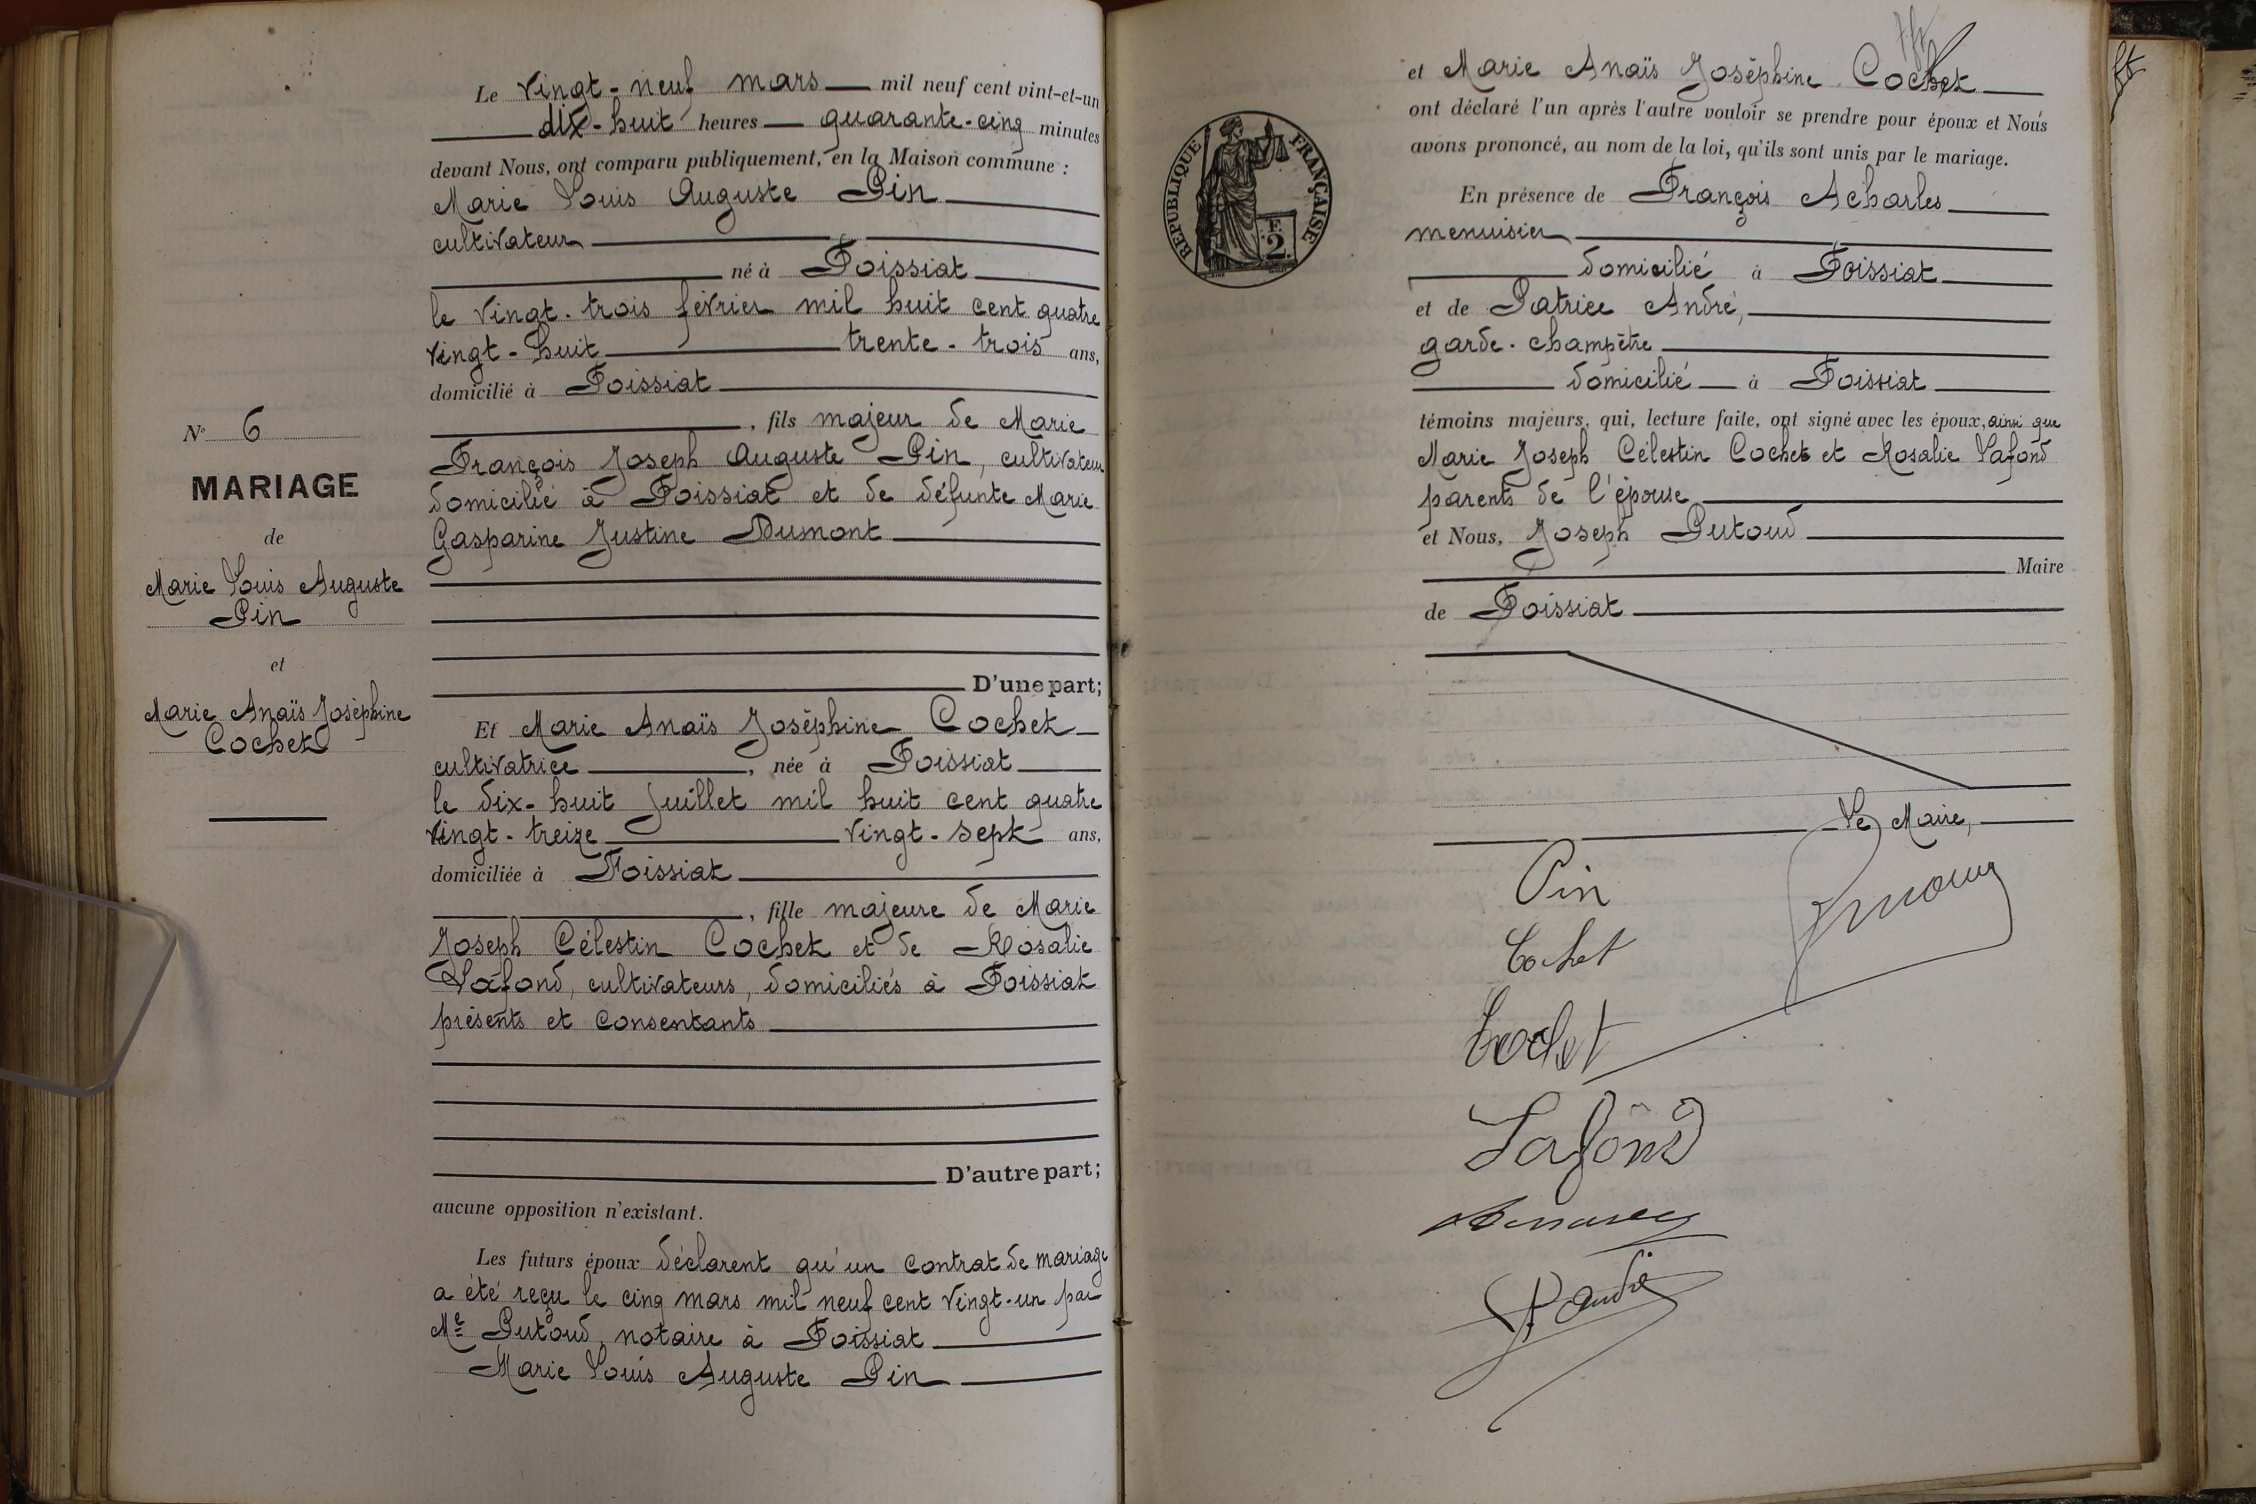 N° 6
MARIAGE
de
Marie Louis Auguste
Pin
et
Marie Anaïs Joséphine
Cochet
Le vingt-neuf mars mil neuf cent vint-et-un
dix-huit heures quarante-cinq minutes
devant Nous, ont comparu publiquement, en la Maison commune :
Marie Louis Auguste Pin
cultivateur
né à Foissiat
le vingt-trois février mil huit cent quatre
vingt-huit trente-trois ans,
domicilié à Foissiat
, fils majeur de Marie
François Joseph Auguste Pin, cultivateur
domicilié à Foissiat et de défunte Marie
Gasparine Justine Dumont
D'une part;
Et Marie Anaïs Joséphine Cochet
cultivatrice, née à Foissiat
le dix-huit juillet mil huit cent quatre
vingt-treize vingt-sept ans,
domiciliée à Foissiat
, fille majeure de Marie
Joseph Célestin Cochet et de Rosalie
Lafond, cultivateurs, domiciliés à Foissiat
présents et consentants
D'autre part;
aucune opposition n'existant.
Les futurs époux déclarent qu'un contrat de mariage
a été reçu le cinq mars mil neuf cent vingt-un par
Me Putoud, notaire à Foissiat
Marie Louis Auguste Pin
REPUBLIQUE FRANÇAISE
F.
2.
et Marie Anaïs Joséphine Cochet
ont déclaré l'un après l'autre vouloir se prendre pour époux et Nous
avons prononcé, au nom de la loi, qu'ils sont unis par le mariage.
En présence de François Acharles
menuisier
domicilié à Foissiat
et de Patrice André,
garde-champêtre
domicilié à Foissiat
témoins majeurs, qui, lecture faite, ont signé avec les époux, ainsi que
Marie Joseph Célestin Cochet et Rosalie Lafond
parents de l'épouse
et Nous, Joseph Putoud
Maire
de Foissiat
Le Maire,
Pin
Cochet
Cochet
Lafond
P. André